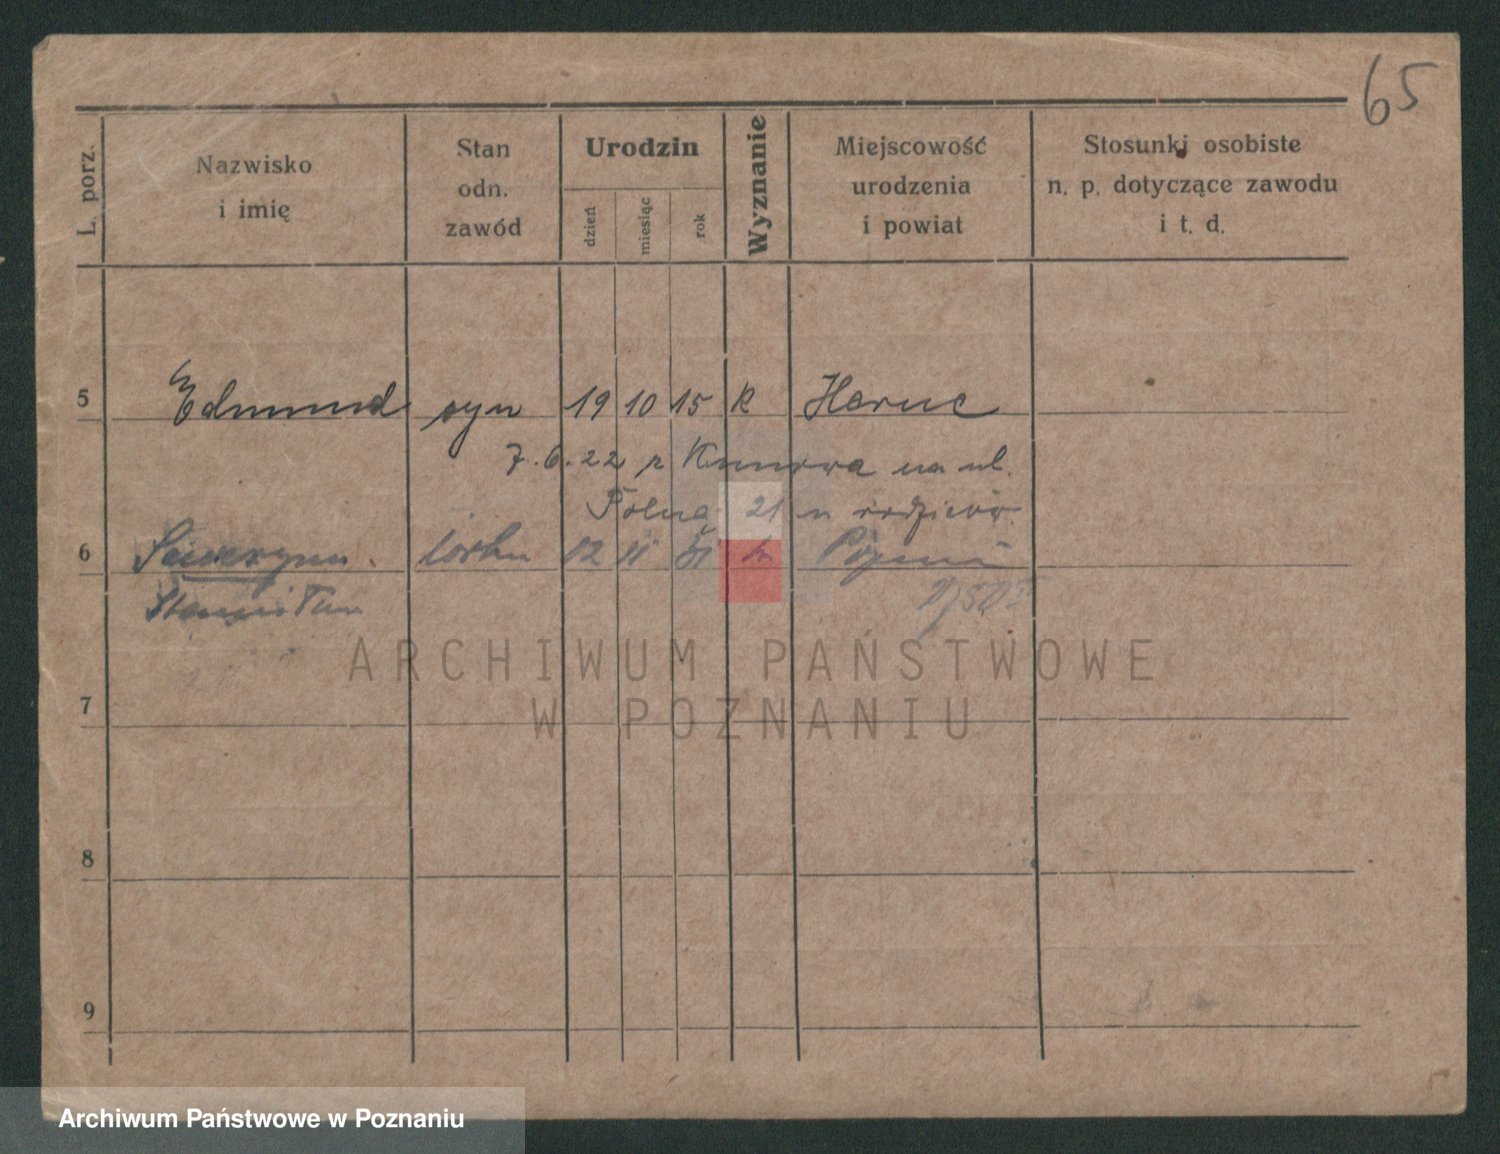 65
L. porz.
Nazwisko
i imię
Stan
odn.
zawód
Urodzin
dzień
miesiąc
rok
Wyznanie
Miejscowość
urodzenia
i powiat
Stosunki osobiste
n. p. dotyczące zawodu
i t. d.
5 Edmund syn 19 10 15 k Herne
7.6.22 z Kunowa na ul.
Polną 21 u rodziców.
6 Seweryna córka 12 11 k
7
8
9
ARCHIWUM PAŃSTWOWE
W POZNANIU
Archiwum Państwowe w Poznaniu